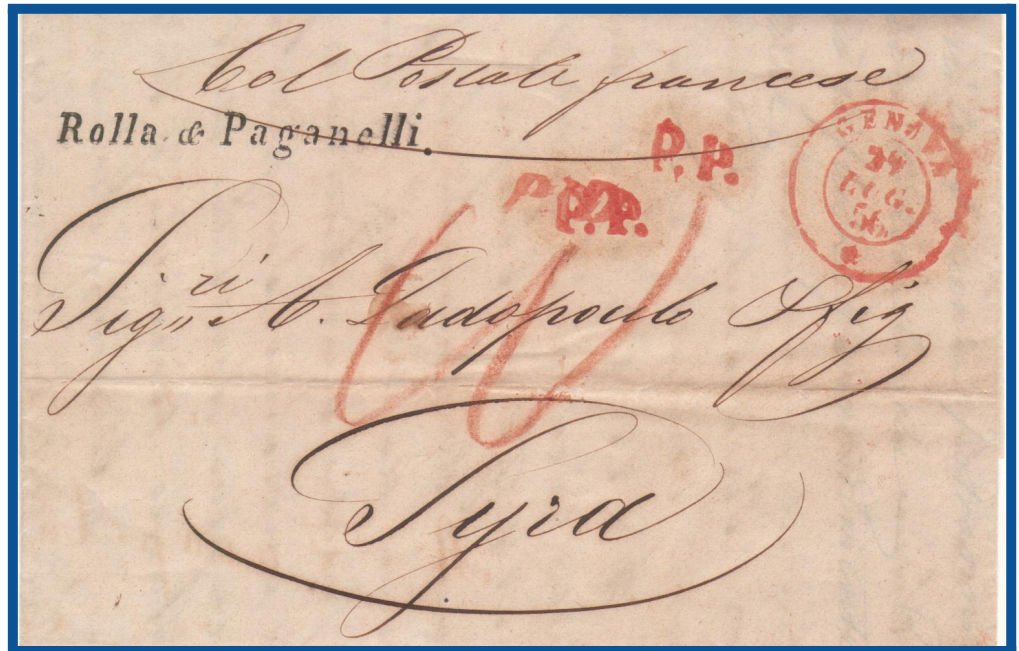 Col Postale francese
Rolla & Paganelli.
P.P.
P.P.
GENOVA
24
LUG.
56
Sigri A. Dadopoulo & fig
Syra